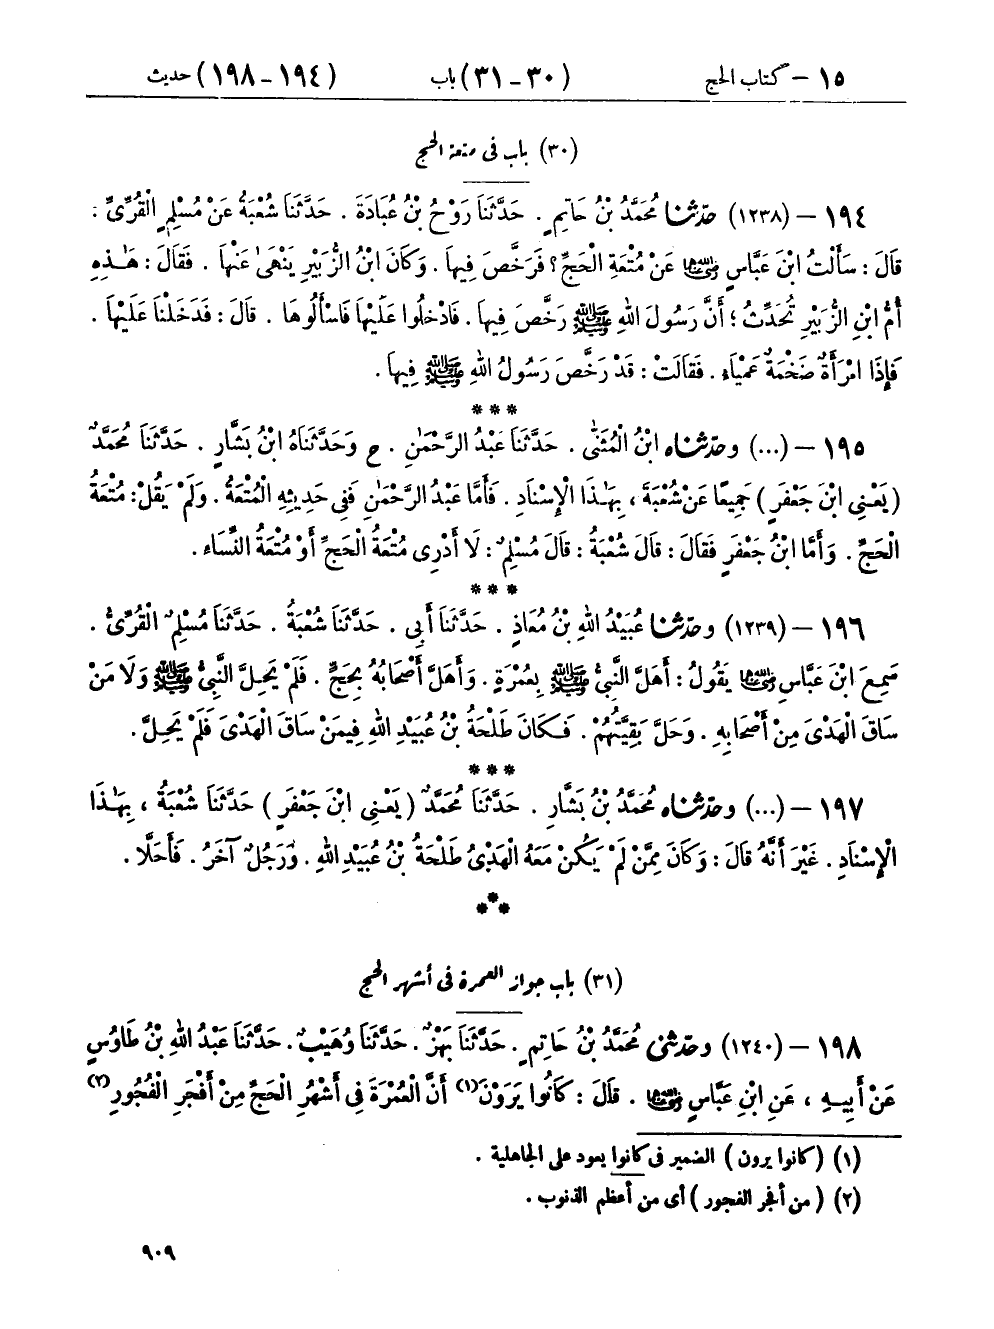 ١٥ – كتاب الحج (٣٠ – ٣١) باب (١٩٤ – ١٩٨) حديث
(٣٠) باب فى متعة الحج
١٩٤ – (١٢٣٨) حدّثنا مُحَمَّدُ بْنُ حَاتِمٍ . حَدَّثَنَا رَوْحُ بْنُ عُبَادَةَ . حَدَّثَنَا شُعْبَةُ عَنْ مُسْلِمٍ الْقُرِّىِّ :
قَالَ : سَأَلْتُ ابْنَ عَبَّاسٍ رضي الله عنهما عَنْ مُتْعَةِ الْحَجِّ ؟ فَرَخَّصَ فِيهَا . وَكَانَ ابْنُ الزُّبَيْرِ يَنْهَىٰ عَنْهَا . فَقَالَ : هَـٰذِهِ
أُمُّ ابْنِ الزُّبَيْرِ تُحَدِّثُ ؛ أَنَّ رَسُولَ اللهِ ﷺ رَخَّصَ فِيهَا . فَادْخُلُوا عَلَيْهَا فَاسْأَلُوهَا . قَالَ : فَدَخَلْنَا عَلَيْهَا .
فَإِذَا امْرَأَةٌ ضَخْمَةٌ عَمْيَاء . فَقَالَتْ : قَدْ رَخَّصَ رَسُولُ اللهِ ﷺ فِيهَا .
***
١٩٥ – (...) وحدّثناه ابْنُ الْمُثَنَّى . حَدَّثَنَا عَبْدُ الرَّحْمَـٰنِ . ح وَحَدَّثَنَاهُ ابْنُ بَشَّارٍ . حَدَّثَنَا مُحَمَّدٌ
( يَعْنِى ابْنَ جَعْفَرٍ ) جَمِيعًا عَنْ شُعْبَةَ ، بِهَـٰذَا الْإِسْنَادِ . فَأَمَّا عَبْدُ الرَّحْمَـٰنِ فَفِى حَدِيثِهِ الْمُتْعَةُ . وَلَمْ يَقُلْ : مُتْعَةُ
الْحَجِّ . وَأَمَّا ابْنُ جَعْفَرٍ فَقَالَ : قَالَ شُعْبَةُ : قَالَ مُسْلِمٌ : لَا أَدْرِى مُتْعَةُ الْحَجِّ أَوْ مُتْعَةُ النِّسَاء .
***
١٩٦ – (١٢٣٩) وحدّثنا عُبَيْدُ اللهِ بْنُ مُعَاذٍ . حَدَّثَنَا أَبِى . حَدَّثَنَا شُعْبَةُ . حَدَّثَنَا مُسْلِمٌ الْقُرِّىُّ .
سَمِعَ ابْنَ عَبَّاسٍ رضي الله عنهما يَقُولُ : أَهَلَّ النَّبِىُّ ﷺ بِعُمْرَةٍ . وَأَهَلَّ أَصْحَابُهُ بِحَجٍّ . فَلَمْ يَحِلَّ النَّبِىُّ ﷺ وَلَا مَنْ
سَاقَ الْهَدْىَ مِنْ أَصْحَابِهِ . وَحَلَّ بَقِيَّتُهُمْ . فَـكَانَ طَلْحَةُ بْنُ عُبَيْدِ اللهِ فِيمَنْ سَاقَ الْهَدْىَ فَلَمْ يَحِلَّ .
***
١٩٧ – (...) وحدّثناه مُحَمَّدُ بْنُ بَشَّارٍ . حَدَّثَنَا مُحَمَّدٌ ( يَعْنِى ابْنَ جَعْفَرٍ ) حَدَّثَنَا شُعْبَةُ ، بِهَـٰذَا
الْإِسْنَادِ . غَيْرَ أَنَّهُ قَالَ : وَكَانَ مِمَّنْ لَمْ يَكُنْ مَعَهُ الْهَدْىُ طَلْحَةُ بْنُ عُبَيْدِ اللهِ . وَرَجُلٌ آخَرُ . فَأَحَلَّا .
***
(٣١) باب جواز العمرة فى أشهر الحج
١٩٨ – (١٢٤٠) وحدّثنى مُحَمَّدُ بْنُ حَاتِمٍ . حَدَّثَنَا بَهْزٌ . حَدَّثَنَا وُهَيْبٌ . حَدَّثَنَا عَبْدُ اللهِ بْنُ طَاوُسٍ
عَنْ أَبِيهِ ، عَنِ ابْنِ عَبَّاسٍ رضي الله عنهما . قَالَ : كَانُوا يَرَوْنَ (١) أَنَّ الْعُمْرَةَ فِى أَشْهُرِ الْحَجِّ مِنْ أَفْجَرِ الْفُجُورِ (٢)
(١) ( كانوا يرون ) الضمير فى كانوا يعود على الجاهلية .
(٢) ( من أفجر الفجور ) أى من أعظم الذنوب .
٩٠٩